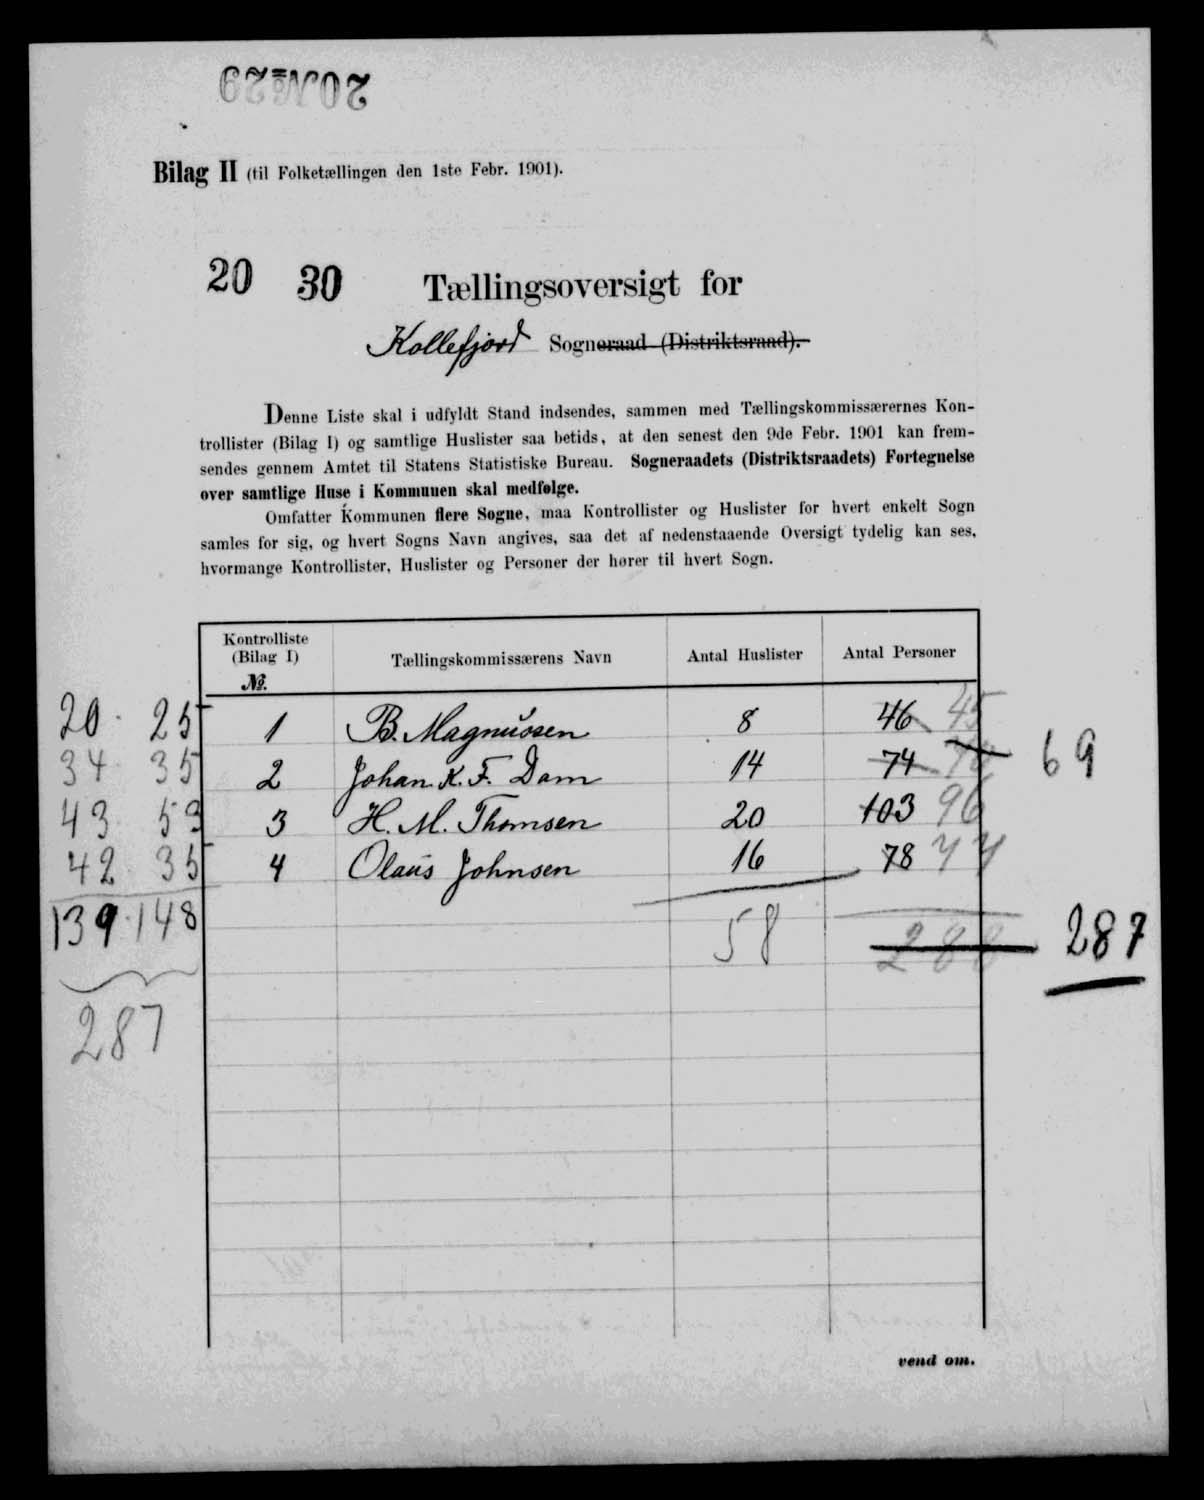 20 № 29
Bilag II (til Folketællingen den 1ste Febr. 1901).
20 30 Tællingsoversigt for
Kollefjord Sogneraad (Distriktsraad).
Denne Liste skal i udfyldt Stand indsendes, sammen med Tællingskommissærernes Kon-
trollister (Bilag I) og samtlige Huslister saa betids, at den senest den 9de Febr. 1901 kan frem-
sendes gennem Amtet til Statens Statistiske Bureau. Sogneraadets (Distriktsraadets) Fortegnelse
over samtlige Huse i Kommunen skal medfølge.
Omfatter Kommunen flere Sogne, maa Kontrollister og Huslister for hvert enkelt Sogn
samles for sig, og hvert Sogns Navn angives, saa det af nedenstaaende Oversigt tydelig kan ses,
hvormange Kontrollister, Huslister og Personer der hører til hvert Sogn.
Kontrolliste
(Bilag I)
№.
Tællingskommissærens Navn
Antal Huslister
Antal Personer
20 25 1 B. Magnussen 8 46 45
34 35 2 Johan K. F. Dam 14 74 69
43 53 3 H. M. Thomsen 20 103 96
42 35 4 Olaus Johnsen 16 78 77
139 148 58 288 287
287
vend om.